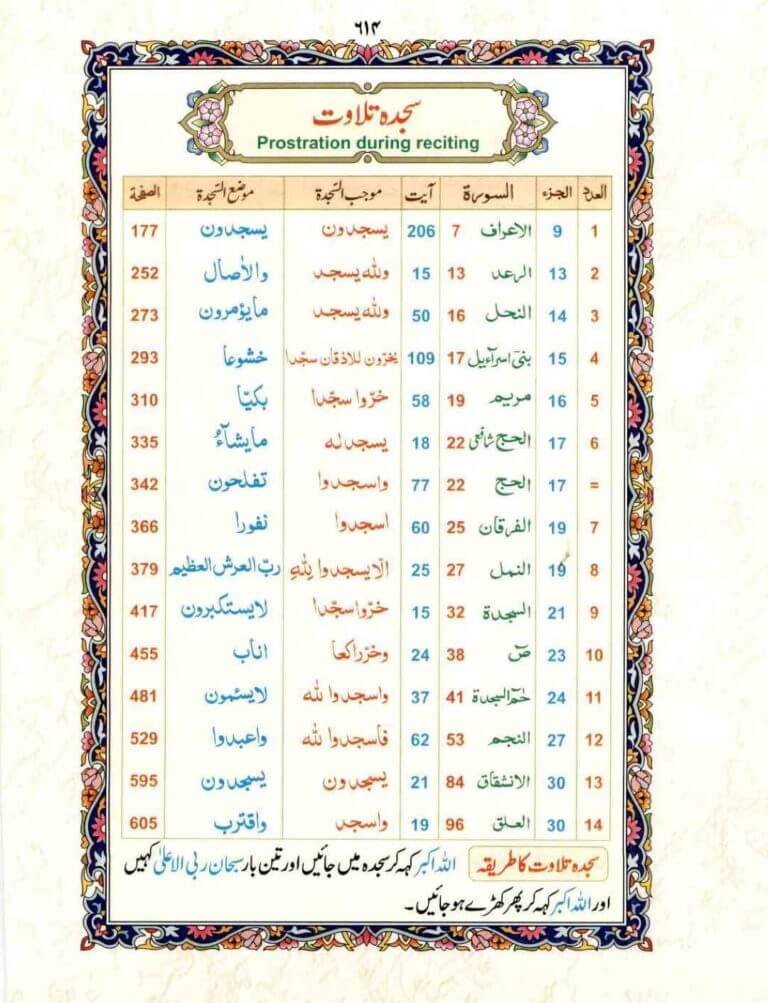 ۶۱۴
سجدہ تلاوت
Prostration during reciting
العدد الجزء السورة آیت موجب السّجدة موضع السّجدة الصفحة
1 9 الاعراف 7 206 يسجدون يسجدون 177
2 13 الرعد 13 15 ولله يسجد والاٰصال 252
3 14 النحل 16 50 ولله يسجد مايؤمرون 273
4 15 بنیٓ اسرآءيل 17 109 يخرّون للاذقان سجّدا خشوعا 293
5 16 مريم 19 58 خرّوا سجّدا بكيّا 310
6 17 الحج شافعی 22 18 يسجد له مايشآءُ 335
= 17 الحج 22 77 واسجدوا تفلحون 342
7 19 الفرقان 25 60 اسجدوا نفورا 366
8 19 النمل 27 25 الّا يسجدوا لِلّٰهِ ربّ العرش العظيم 379
9 21 السجدة 32 15 خرّوا سجّدا لايستكبرون 417
10 23 صٓ 38 24 وخرّ راكعا اناب 455
11 24 حٰمٓ السجدة 41 37 واسجدوا لله لايسئمون 481
12 27 النجم 53 62 فاسجدوا لله واعبدوا 529
13 30 الانشقاق 84 21 يسجدون يسجدون 595
14 30 العلق 96 19 واسجد واقترب 605
سجدہ تلاوت کا طریقہ اللہ اکبر کہہ کر سجدہ میں جائیں اور تین بار سبحان ربی الاعلیٰ کہیں
اور اللہ اکبر کہہ کر پھر کھڑے ہو جائیں۔